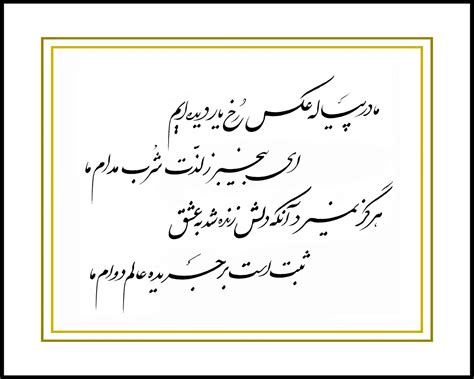 ما در پیاله عکس رُخ یار دیده ایم
ای بیخبر ز لذّت شُرب مدام ما
هرگز نمیرد آنکه دلش زنده شد به عشق
ثبت است بر جریده عالم دوام ما